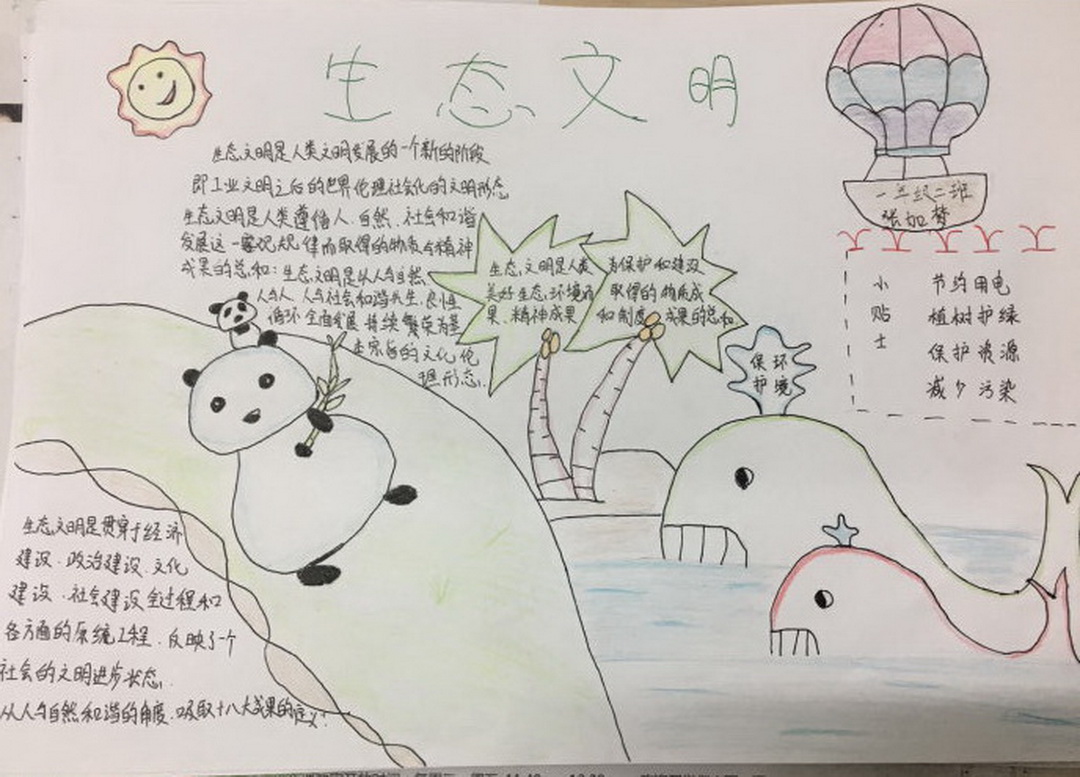 生态文明
生态文明是人类文明发展的一个新的阶段
即工业文明之后的世界伦理社会化的文明形态
生态文明是人类遵循人、自然、社会和谐
发展这一客观规律而取得的物质与精神
成果的总和：生态文明是以人与自然、
人与人、人与社会和谐共生、良性
循环、全面发展、持续繁荣为基
本宗旨的文化伦
理形态.
生态文明是人类
美好生态环境而
果、精神成果
为保护和建设
取得的物质成
和制度成果的总和
一年级二班
张加梦
小贴士
节约用电
植树护绿
保护资源
减少污染
保护
环境
生态文明是贯穿于经济
建设、政治建设、文化
建设、社会建设全过程和
各方面的系统工程，反映了一个
社会的文明进步状态.
从人与自然和谐的角度，吸取十八大成果的定义：